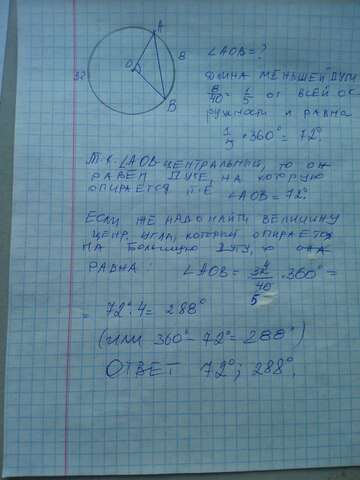 A
O
8
32
B
∠AOB = ?
ДЛИНА МЕНЬШЕЙ ДУГИ
8/40 = 1/5 ОТ ВСЕЙ ОК
РУЖНОСТИ И РАВНА
1/5 · 360° = 72°.
Т.К. ∠AOB-ЦЕНТРАЛЬНЫЙ, ТО ОН
РАВЕН ДУГЕ, НА КОТОРУЮ
ОПИРАЕТСЯ Т.Е
∠AOB = 72°.
ЕСЛИ ЖЕ НАДО НАЙТИ ВЕЛИЧИНУ
ЦЕНТР. УГЛА, КОТОРЫЙ ОПИРАЕТСЯ
НА БОЛЬШУЮ ДУГУ, ТО ОНА
РАВНА: ∠AOB = 32/40 · 360° =
4
5
= 72°·4 = 288°
(ИЛИ 360° - 72° = 288°)
ОТВЕТ 72°; 288°.